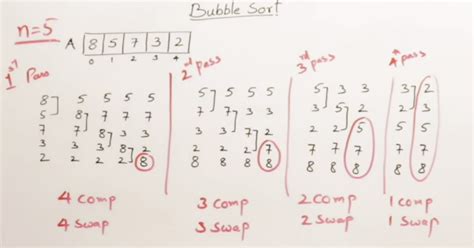 Bubble Sort
n=5
A 8 5 7 3 2
0 1 2 3 4
1st Pass
8 5 5 5 5
5 8 7 7 7
7 7 8 3 3
3 3 3 8 2
2 2 2 2 8
4 Comp
4 Swap
2nd pass
5 5 5 5
7 7 3 3
3 3 7 2
2 2 2 7
8 8 8 8
3 Comp
3 Swap
3rd pass
5 3 3
3 5 2
2 2 5
7 7 7
8 8 8
2 Comp
2 Swap
4th pass
3 2
2 3
5 5
7 7
8 8
1 Comp
1 Swap